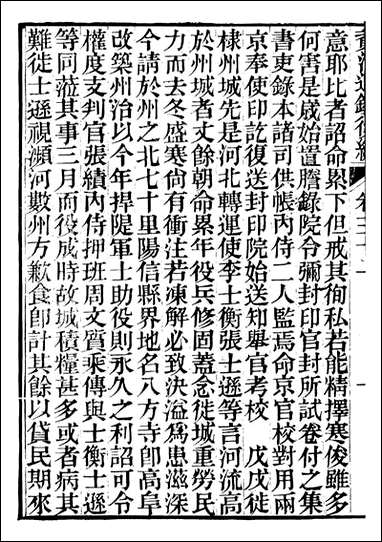 意耶比者詔命累下但戒其徇私若能精擇寒俊雖多
何害是歲始置謄錄院令彌封印官封所試卷付之集
書吏錄本諸司供帳内侍二人監焉命京官校對用兩
京奉使印訖復送封印院始送知舉官考校　戊戌徙
棣州城先是河北轉運使李士衡張士遜等言河流高
於州城者丈餘朝命累年役兵修固蓋念徙城重勞民
力而去冬盛寒尙有衝注若凍解必致決溢爲患滋深
今請於州之北七十里陽信縣界地名八方寺卽高阜
改築州治以今年捍隄軍士助役則永久之利詔可令
權度支判官張績内侍押班周文質乘傳與士衡士遜
等同蒞其事三月而役成時故城積糧甚多或者病其
難徙士遜視瀕河數州方歉食卽計其餘以貸民期來